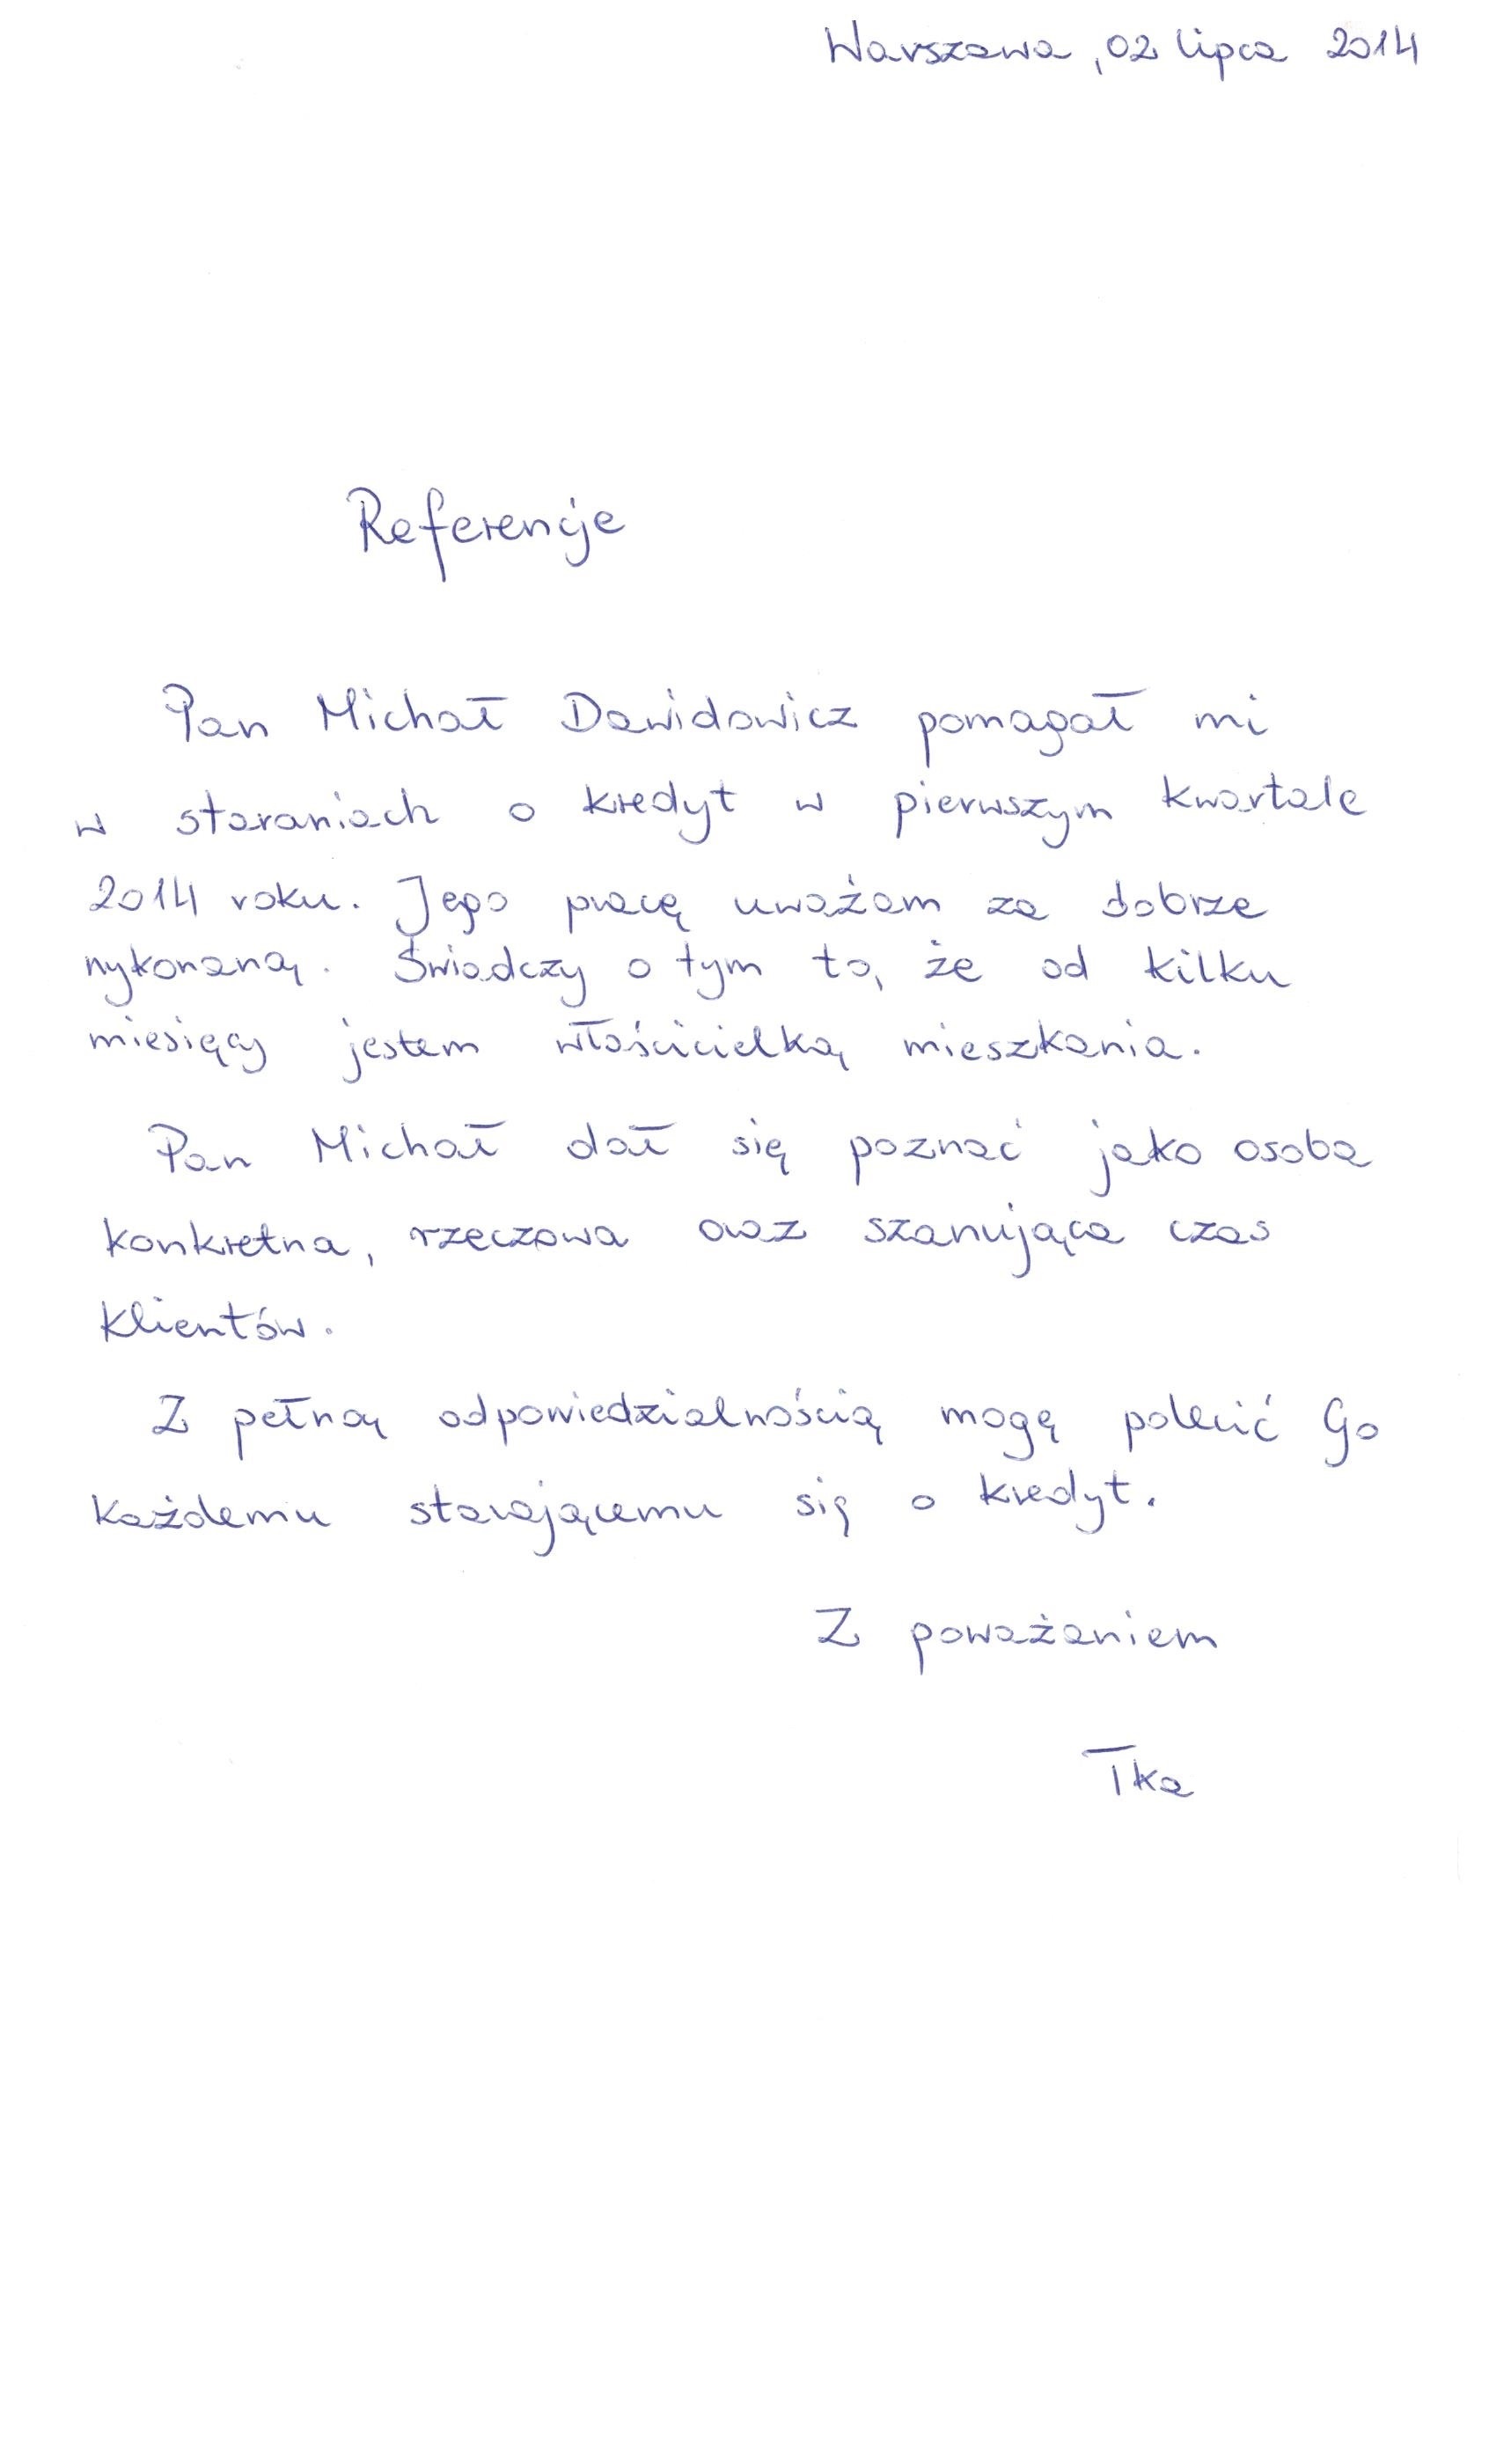 Warszawa, 02 lipca 2014
Referencje
Pan Michał Dawidowicz pomagał mi
w staraniach o kredyt w pierwszym kwartale
2014 roku. Jego pracę uważam za dobrze
wykonaną. Świadczy o tym to, że od kilku
miesięcy jestem właścicielką mieszkania.
Pan Michał dał się poznać jako osoba
konkretna, rzeczowa oraz szanująca czas
klientów.
Z pełną odpowiedzialnością mogę polecić Go
każdemu starającemu się o kredyt.
Z poważaniem
Tka